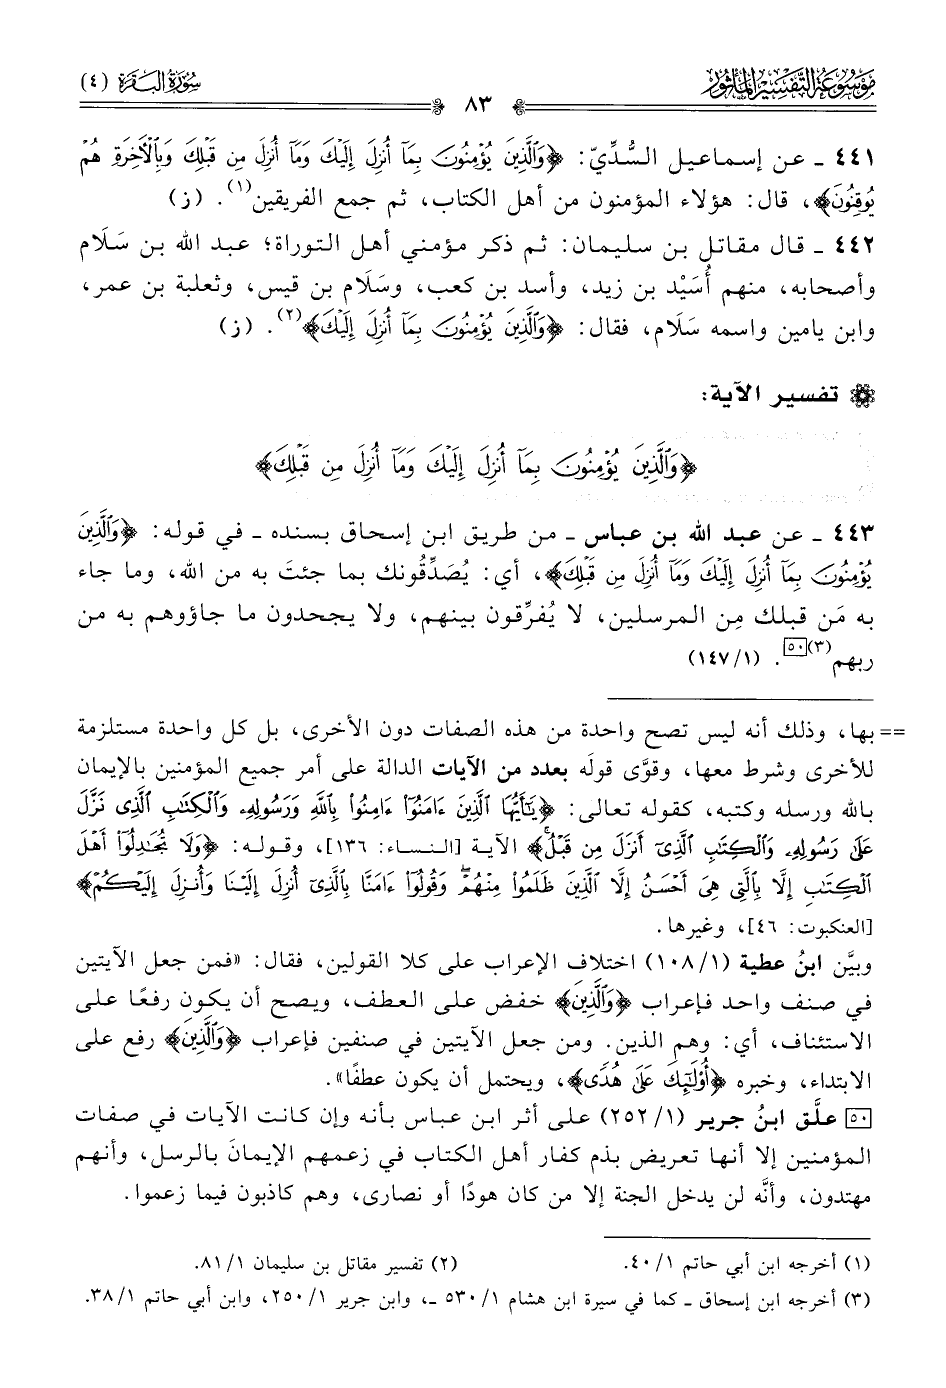 موسوعة التفسير المأثور
سورة البقرة (٤)
٨٣
٤٤١ ـ عن إسماعيل السُّدِّيّ: ﴿وَالَّذِينَ يُؤْمِنُونَ بِمَا أُنزِلَ إِلَيْكَ وَمَا أُنزِلَ مِن قَبْلِكَ وَبِالْآخِرَةِ هُمْ
يُوقِنُونَ﴾، قال: هؤلاء المؤمنون من أهل الكتاب، ثم جمع الفريقين(١). (ز)
٤٤٢ ـ قال مقاتل بن سليمان: ثم ذكر مؤمني أهل التوراة؛ عبد الله بن سَلَام
وأصحابه، منهم أُسَيْد بن زيد، وأسد بن كعب، وسَلَام بن قيس، وثعلبة بن عمر،
وابن يامين واسمه سَلَام، فقال: ﴿وَالَّذِينَ يُؤْمِنُونَ بِمَا أُنزِلَ إِلَيْكَ﴾(٢). (ز)
تفسير الآية:
﴿وَالَّذِينَ يُؤْمِنُونَ بِمَا أُنزِلَ إِلَيْكَ وَمَا أُنزِلَ مِن قَبْلِكَ﴾
٤٤٣ ـ عن عبد الله بن عباس ـ من طريق ابن إسحاق بسنده ـ في قوله: ﴿وَالَّذِينَ
يُؤْمِنُونَ بِمَا أُنزِلَ إِلَيْكَ وَمَا أُنزِلَ مِن قَبْلِكَ﴾، أي: يُصَدِّقُونك بما جئتَ به من الله، وما جاء
به مَن قبلك مِن المرسلين، لا يُفرِّقون بينهم، ولا يجحدون ما جاؤوهم به من
ربهم(٣)[٥٠]. (١/ ١٤٧)
== بها، وذلك أنه ليس تصح واحدة من هذه الصفات دون الأخرى، بل كل واحدة مستلزمة
للأخرى وشرط معها، وقوَّى قولَه بعدد من الآيات الدالة على أمر جميع المؤمنين بالإيمان
بالله ورسله وكتبه، كقوله تعالى: ﴿يَٰٓأَيُّهَا ٱلَّذِينَ ءَامَنُوٓا۟ ءَامِنُوا۟ بِٱللَّهِ وَرَسُولِهِۦ وَٱلْكِتَٰبِ ٱلَّذِى نَزَّلَ
عَلَىٰ رَسُولِهِۦ وَٱلْكِتَٰبِ ٱلَّذِىٓ أَنزَلَ مِن قَبْلُ﴾ الآية [النساء: ١٣٦]، وقوله: ﴿وَلَا تُجَٰدِلُوٓا۟ أَهْلَ
ٱلْكِتَٰبِ إِلَّا بِٱلَّتِى هِىَ أَحْسَنُ إِلَّا ٱلَّذِينَ ظَلَمُوا۟ مِنْهُمْ وَقُولُوٓا۟ ءَامَنَّا بِٱلَّذِىٓ أُنزِلَ إِلَيْنَا وَأُنزِلَ إِلَيْكُمْ﴾
[العنكبوت: ٤٦]، وغيرها.
وبيَّن ابنُ عطية (١/ ١٠٨) اختلاف الإعراب على كلا القولين، فقال: «فمن جعل الآيتين
في صنف واحد فإعراب ﴿وَالَّذِينَ﴾ خفض على العطف، ويصح أن يكون رفعًا على
الاستئناف، أي: وهم الذين. ومن جعل الآيتين في صنفين فإعراب ﴿وَالَّذِينَ﴾ رفع على
الابتداء، وخبره ﴿أُو۟لَٰٓئِكَ عَلَىٰ هُدًى﴾، ويحتمل أن يكون عطفًا».
[٥٠] علَّق ابنُ جرير (١/ ٢٥٢) على أثر ابن عباس بأنه وإن كانت الآيات في صفات
المؤمنين إلا أنها تعريض بذم كفار أهل الكتاب في زعمهم الإيمانَ بالرسل، وأنهم
مهتدون، وأنَّه لن يدخل الجنة إلا من كان هودًا أو نصارى، وهم كاذبون فيما زعموا.
(١) أخرجه ابن أبي حاتم ١/ ٤٠.
(٢) تفسير مقاتل بن سليمان ١/ ٨١.
(٣) أخرجه ابن إسحاق ـ كما في سيرة ابن هشام ١/ ٥٣٠ ـ، وابن جرير ١/ ٢٥٠، وابن أبي حاتم ١/ ٣٨.